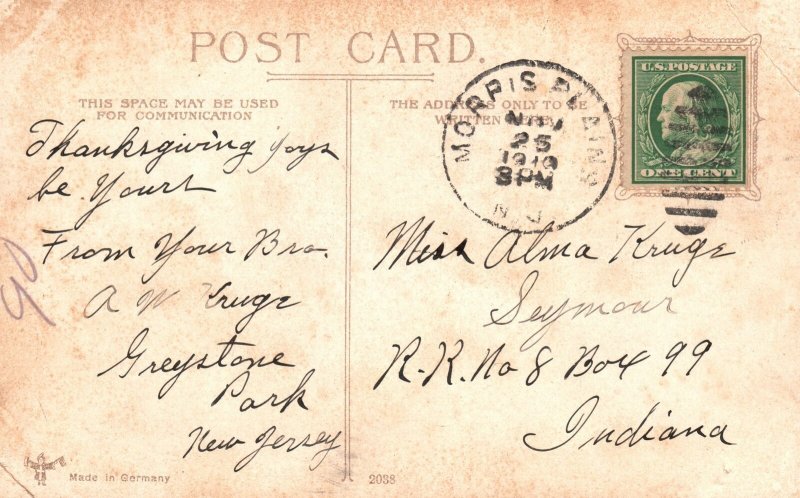 POST CARD.
THIS SPACE MAY BE USED
FOR COMMUNICATION
THE ADDRESS ONLY TO BE
WRITTEN HERE
MORRIS PLAINS
NOV
25
1910
8PM
N.J.
U.S. POSTAGE
ONE CENT
Thanksgiving Joys
be Yours
From Your Bro.
A W Kruge
Greystone
Park
New Jersey
90
Miss Alma Kruge
Seymour
R.R. No 8 Box 99
Indiana
Made in Germany
2038